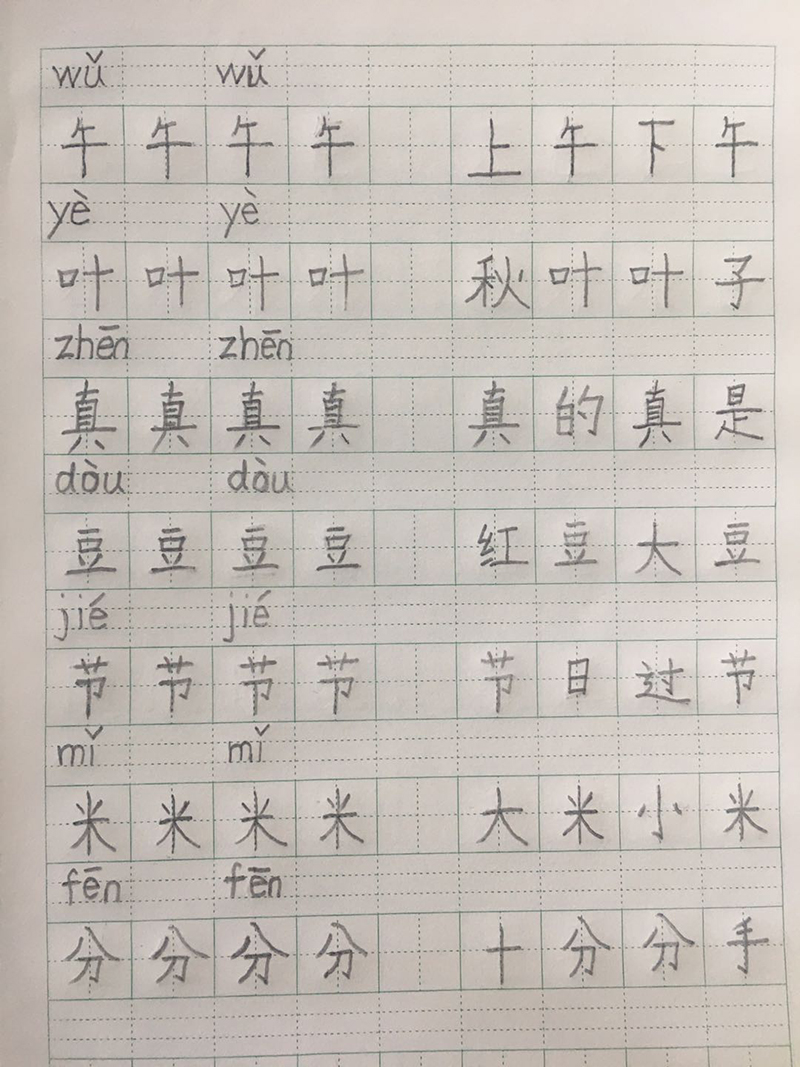 wǔ wǔ
午 午 午 午 上 午 下 午
yè yè
叶 叶 叶 叶 秋 叶 叶 子
zhēn zhēn
真 真 真 真 真 的 真 是
dòu dòu
豆 豆 豆 豆 红 豆 大 豆
jié jié
节 节 节 节 节 日 过 节
mǐ mǐ
米 米 米 米 大 米 小 米
fēn fēn
分 分 分 分 十 分 分 手